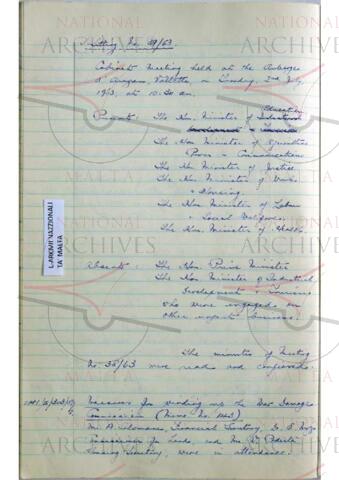 Sitting No. 39/63.
Cabinet Meeting held at the Auberge
d'Aragon, Valletta, on Tuesday, 2nd July,
1963, at 10.30 am.
Presents : The Hon. Minister of Education
The Hon. Minister of
Power & Communications
The Hon Minister of Justice
The Hon. Minister of Works
& Housing
The Hon. Minister of Labour
& Social Welfare
The Hon. Minister of Health
Absents : The Hon. Prime Minister
The Hon Minister of Industrial
Development & Tourism
who were engaged on
other urgent business.
The minutes of Meeting
No. 38/63 were read and confirmed.
Measures for winding up the War Damage
Commission (Memo No.
Mr. A. Financial Secretary, Dr.
Commissioner for Lands, and Mr.
Secretary, were in attendance.
L-ARKIVJI NAZZJONALI
TA' MALTA
NATIONAL
ARCHIVES
MALTA